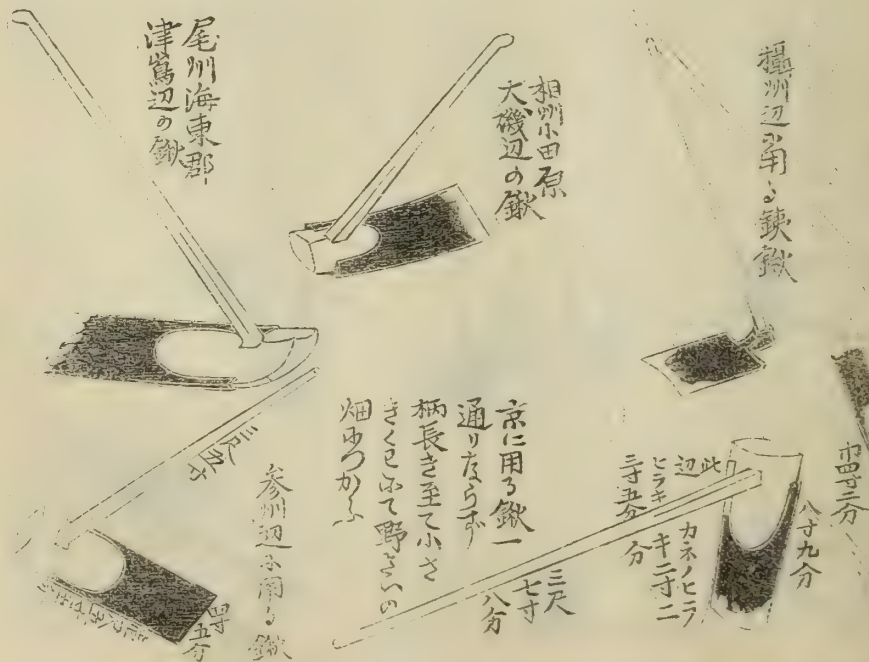 摂州辺に用る鋳鍬
相州小田原
大磯辺の鍬
尾州海東郡
津嶌辺の鍬
巾四寸二分
八寸九分
カネノヒラ
キ二寸二
分
此
辺
ヒラキ
三寸五分
三尺
七寸
八分
京に用る鍬一
通りならず
柄長き至て小さ
きくわにて野さいの
畑につかふ
三尺五寸
参州辺に用る鍬
五分